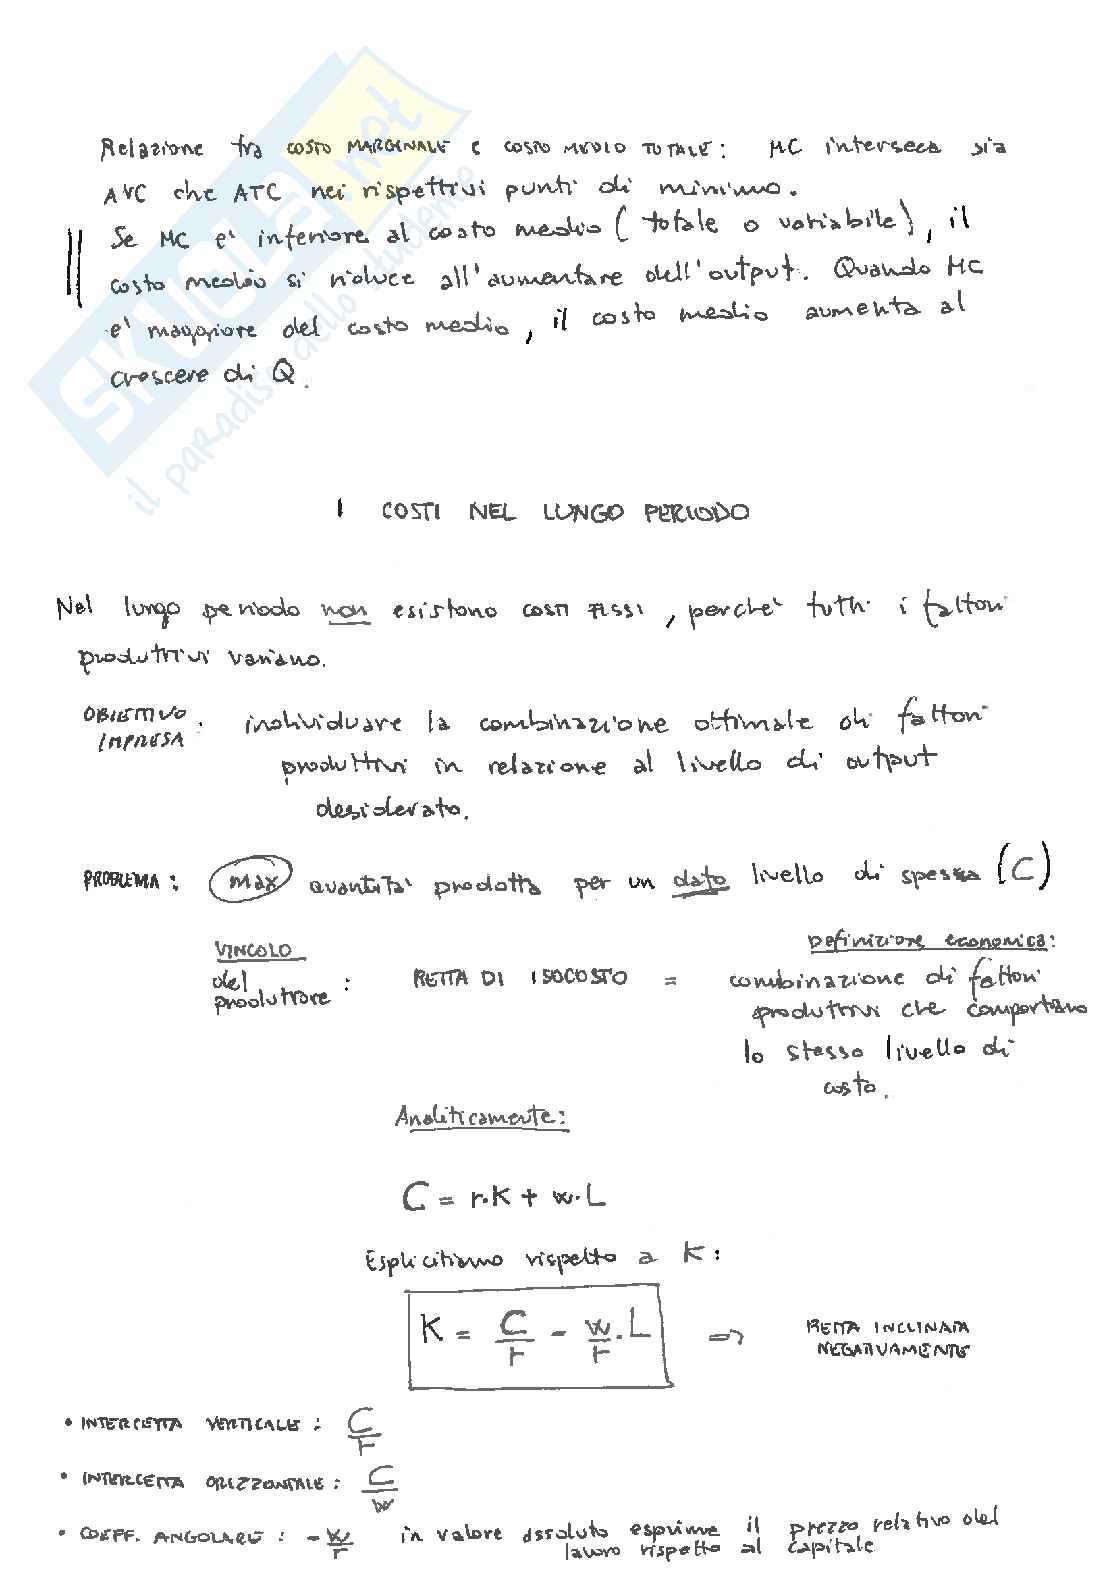 Relazione tra COSTO MARGINALE e COSTO MEDIO TOTALE: MC interseca sia
AVC che ATC nei rispettivi punti di minimo.
Se MC e' inferiore al costo medio (totale o variabile), il
costo medio si riduce all'aumentare dell'output. Quando MC
e' maggiore del costo medio, il costo medio aumenta al
crescere di Q.
SKUOLA.net
il paradiso dello studente
I COSTI NEL LUNGO PERIODO
Nel lungo periodo non esistono COSTI FISSI, perche' tutti i fattori
produttivi variano.
OBIETTIVO IMPRESA: individuare la combinazione ottimale di fattori
produttivi in relazione al livello di output
desiderato.
PROBLEMA: max quantita' prodotta per un dato livello di spesa (C)
VINCOLO del produttore: RETTA DI ISOCOSTO = Definizione economica:
combinazione di fattori
produttivi che comportano
lo stesso livello di
costo.
Analiticamente:
C = r·K + w·L
Esplicitiamo rispetto a K:
K = C/r - w/r · L ⇒ RETTA INCLINATA
NEGATIVAMENTE
• INTERCETTA VERTICALE: C/r
• INTERCETTA ORIZZONTALE: C/w
• COEFF. ANGOLARE: -w/r in valore assoluto esprime il prezzo relativo del
lavoro rispetto al capitale